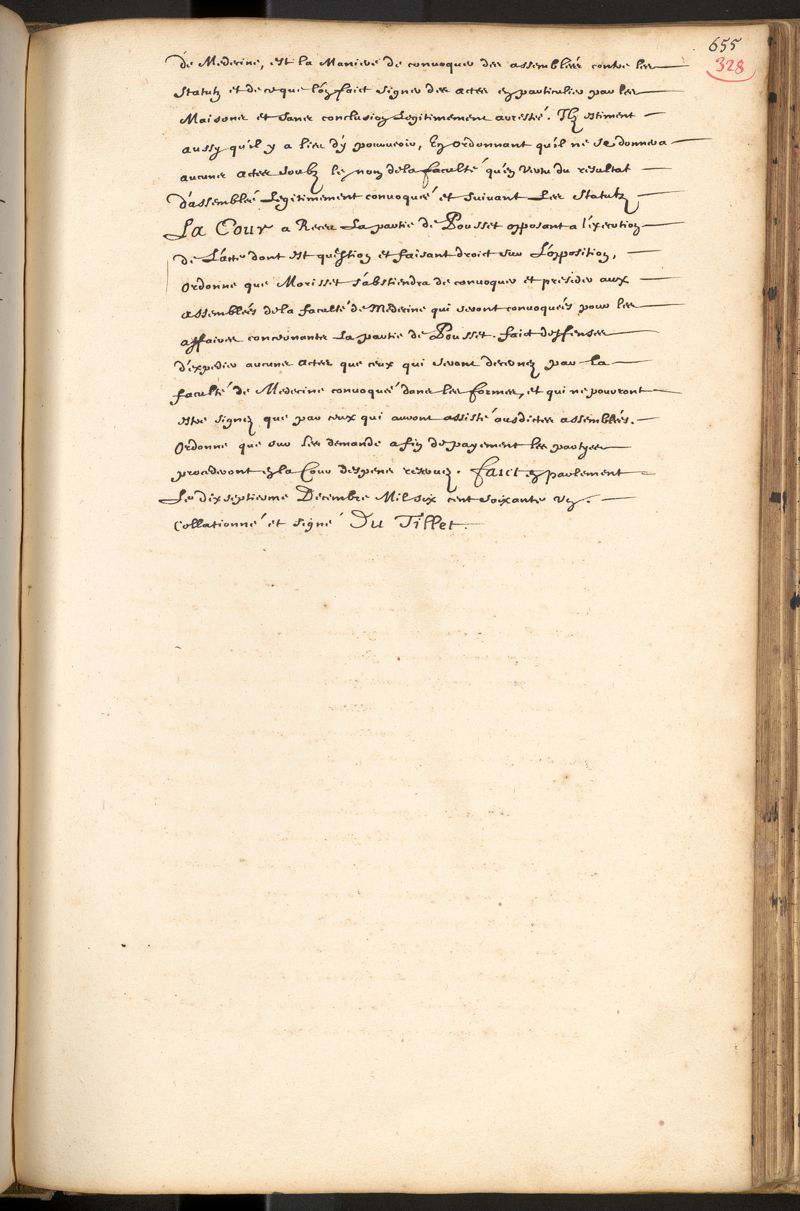 655
328
de Medecine, est la Maniere de convoquer des assembleés contre les
Statutz et de ce que lon faict signer des actes en particulier par les
Maisons et sans conclusion Legitimement arresteé. Ilz estiment
aussy qu'il y a lieu d'y pourveoir, En ordonnant qu'il ne se donnera
aucuns actes soubz le nom de la faculté qu'en vertu du résultat
d'assembleé Legitimement convoqueé et suivant Les Statutz
La Cour a Receu La partie de Pousset opposant a l'éxécution
de L'acte dont est question et faisant droict sur L'opposition,
Ordonne que Morisset s'abstiendra de convoquer et presider aux
assembleés de la faculté de Médecine qui seront convoqueés pour les
affaires concernantes La partie de Pousset. faict deffenses
d'expedier aucuns actes que ceux qui seront decernez par la
faculté de Medecine convoqueé dans les formes, et qui ne pourront
estre signez que par ceux qui auront assisté ausdictes assembleés.
Ordonne que sur les demande a fin de payement les partyes
procederont en la Cour despens reservez. faict en parlement
Le dix septiesme Decembre Mil six cent soixante un.
Collationné et signé Du Tillet.